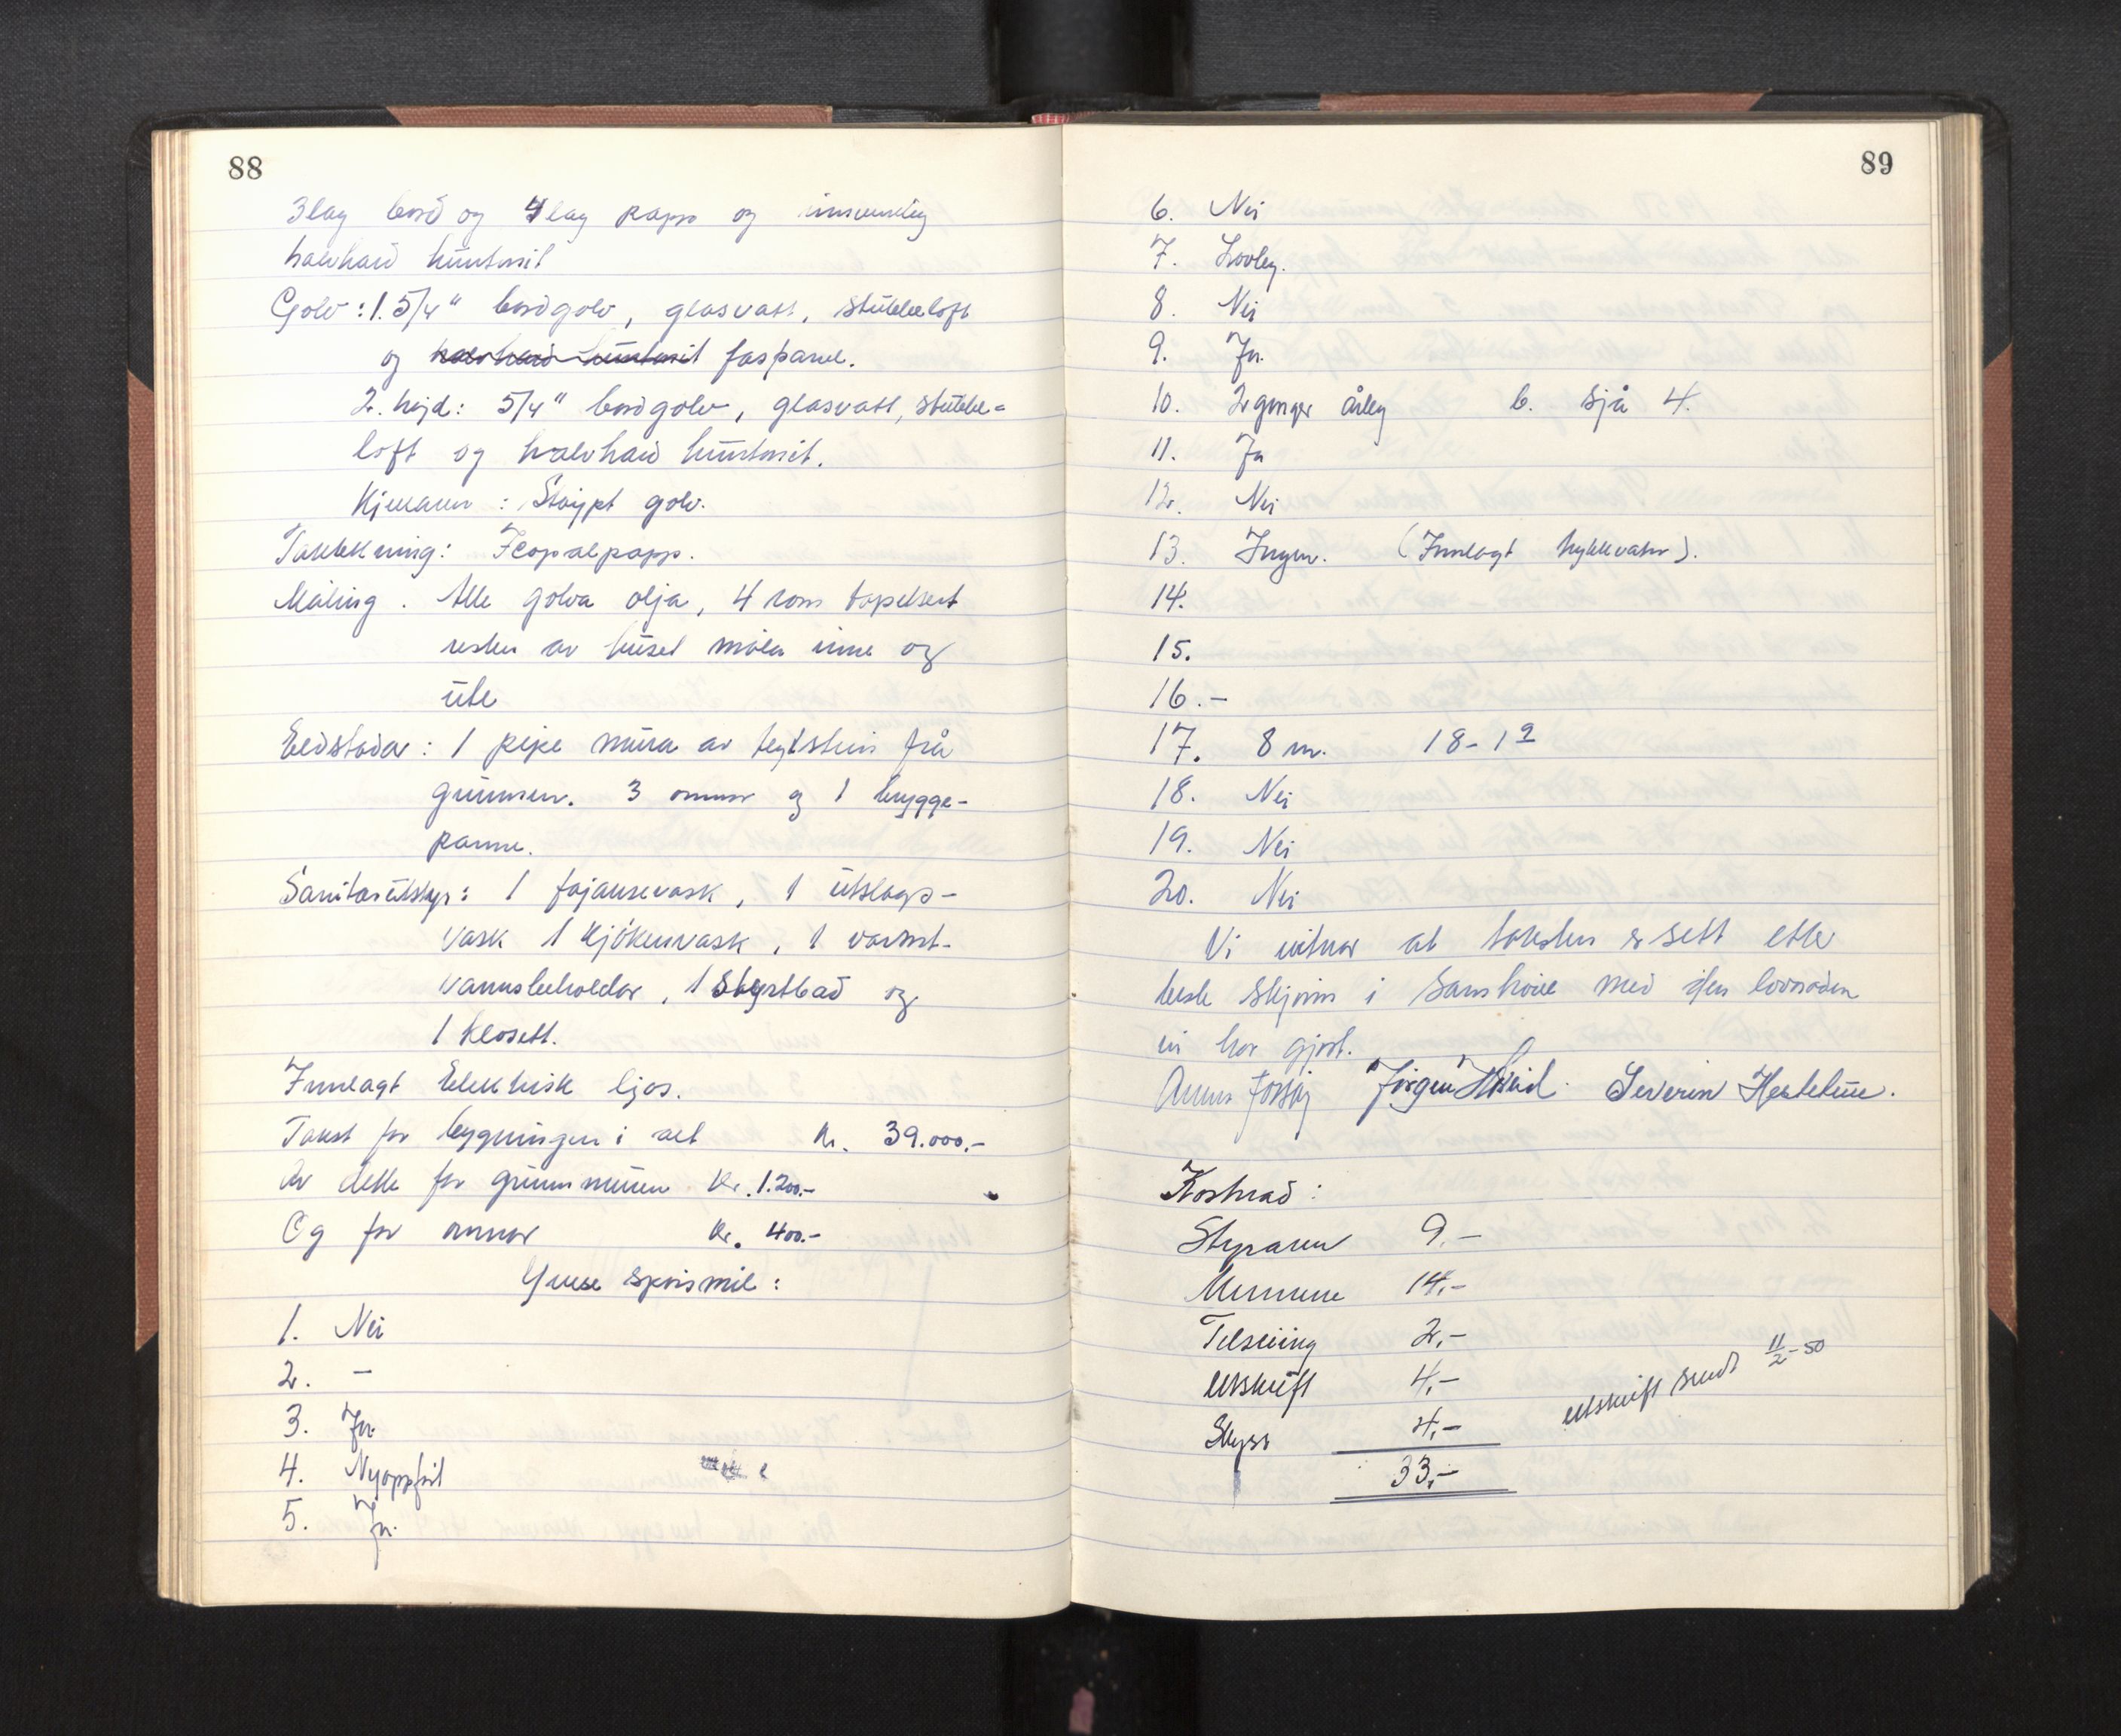 88
3 lag bord og 4 lag papp og innvendig
halvhard huntonit
Golv: 1. 5/4" bordgolv, glasvatt, stubbeloft
og halvhard huntonit faspanel.
2. högd: 5/4" bordgolv, glasvatt, stubbe-
loft og halvhard huntonit.
Kjellaren: Støypt golv.
Taktekning: Icopalpapp.
Måling. Alle golva olja, 4 rom tapetsert
resten av huset måla inne og
ute
Eldstader: 1 pipe mura av teglstein frå
grunnen. 3 omnar og 1 brygge-
panne.
Sanitærutstyr: 1 fajansevask, 1 utslags-
vask 1 kjökenvask, 1 varmt-
vannsbeholder, 1 styrtbad og
1 klosett.
Innlagt Elektrisk ljos.
Takst for bygningen i alt Kr. 39.000.-
Av dette for grunnmuren Kr. 1.200.-
Og for omnar Kr. 400.-
Ymse spörsmål:
1. Nei
2. -
3. Ja.
4. Nyoppfört
5. Ja.
89
6. Nei
7. Lovleg.
8. Nei
9. Ja.
10. 2 ganger årleg b. sjå 4.
11. Ja
12. Nei
13. Ingen. (Innlagt trykkvatn).
14.
15.
16. -
17. 8 m. 18-1 a
18. Nei
19. Nei
20. Nei
Vi vitnar at taksten er sett etter
beste skjönn i samhöve med den lovnaden
vi har gjort.
Jörgen Severin Hestetun.
Kostnad:
Styraren 9.-
Mennene 14.-
Tilseiing 2.-
Utskrift 4.-
Skyss 4.-
33.-
utskrift sendt 11/2-50